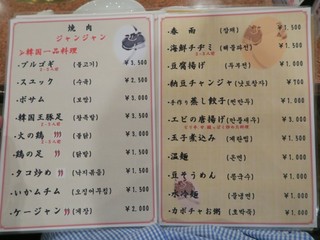 焼肉
ジャンジャン
韓国一品料理
・プルゴギ (불고기) ¥3,500
・スユック (수육) ¥2,500
・ボサム (보쌈) ¥3,000
・韓国王豚足 (왕족발) ¥3,000
・火の鶏 (불닭) ¥1,500
・鶏の足 (닭발) ¥1,500
・タコ炒め (낙지볶음) ¥1,500
・いかムチム (오징어무침) ¥1,500
・ケージャン (게장) ¥2,000
・春雨 (잡채) ¥1,500
・海鮮チヂミ (해물파전) ¥1,500
・豆腐揚げ (두부전) ¥1,000
・納豆チャンジャ (낫토창자) ¥700
・手作り蒸し餃子 (찐만두) ¥1,000
・エビの唐揚げ
・玉子煮込み (계란찜) ¥1,000
・温麺 (온면) ¥1,000
・豆そうめん (콩국수) ¥1,000
・水冷麺 (물냉면) ¥1,000
・カボチャお粥 (호박죽) ¥1,000